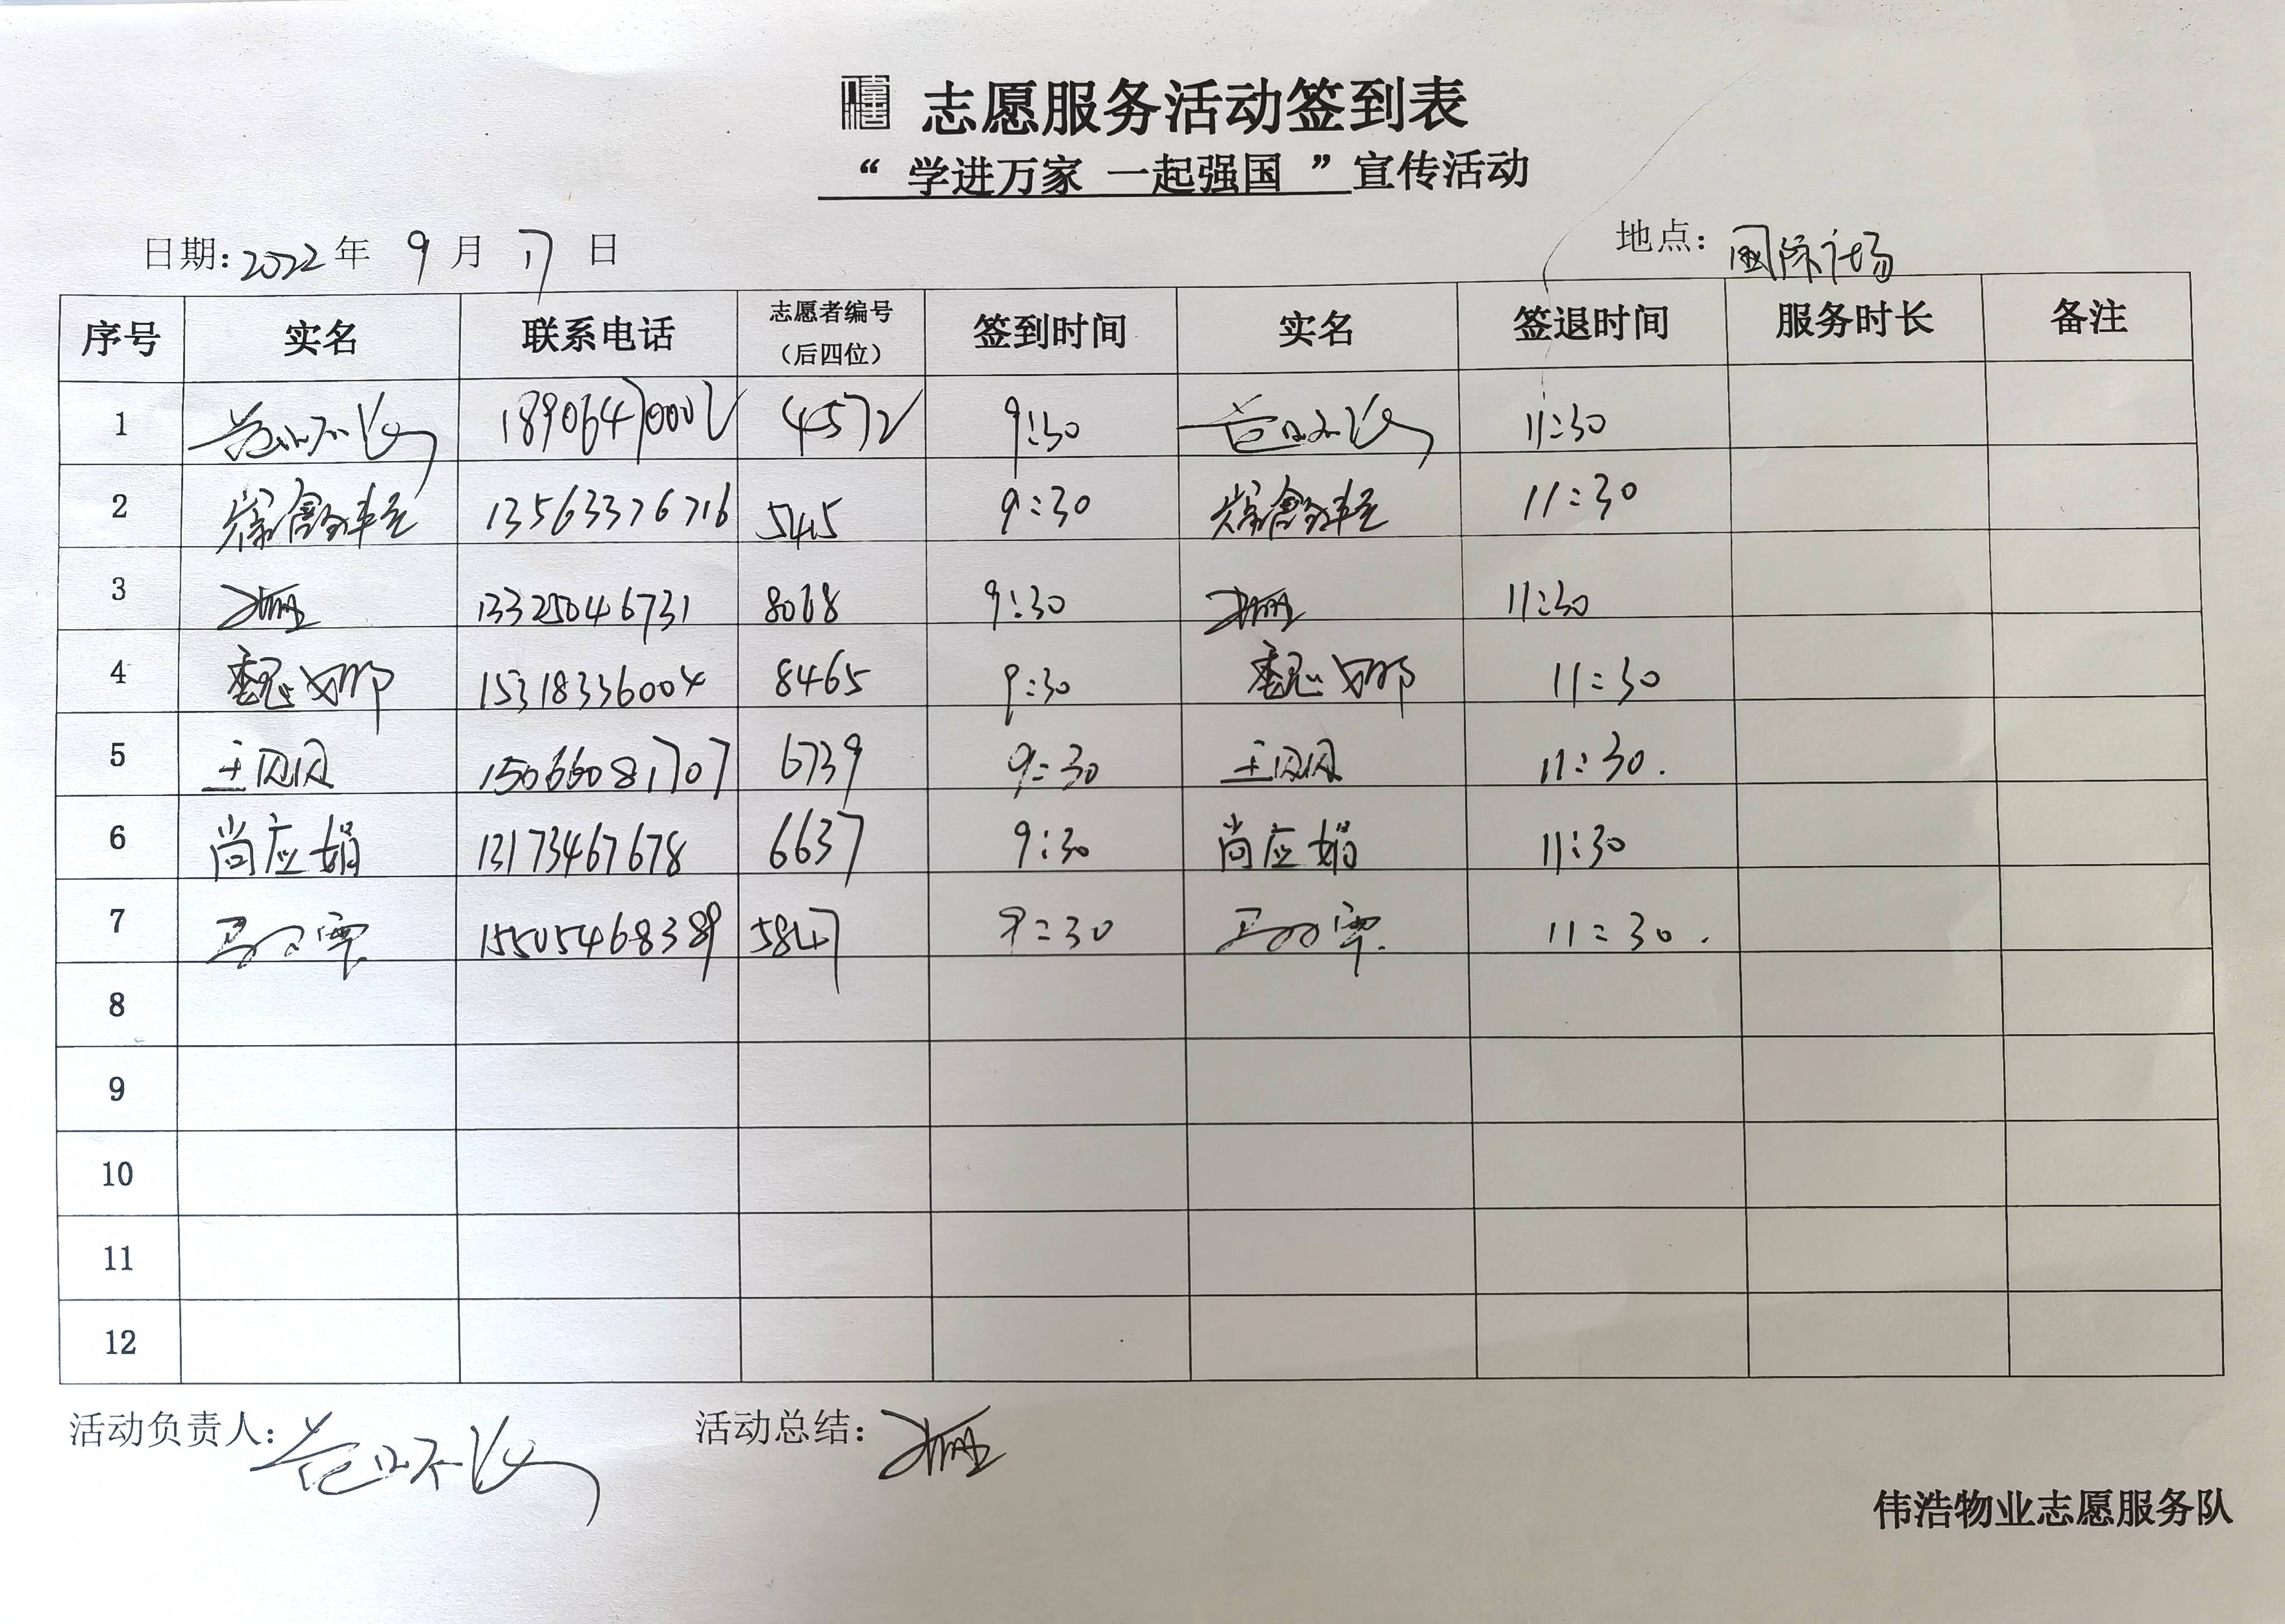 志愿服务活动签到表
“ 学进万家 一起强国 ” 宣传活动
日期: 2022 年 9 月 17 日 地点: 国际市场
序号 实名 联系电话 志愿者编号（后四位） 签到时间 实名 签退时间 服务时长 备注
1 18906470002 4572 9:30 11:30
2 13563376716 5415 9:30 11:30
3 13325046731 8068 9:30 11:30
4 魏娜 15318336004 8465 9:30 魏娜 11:30
5 王贝贝 15066081707 6739 9:30 王贝贝 11:30.
6 尚应娟 13173467678 6637 9:30 尚应娟 11:30
7 15505468389 5847 9:30 11:30.
8
9
10
11
12
活动负责人: 活动总结:
伟浩物业志愿服务队